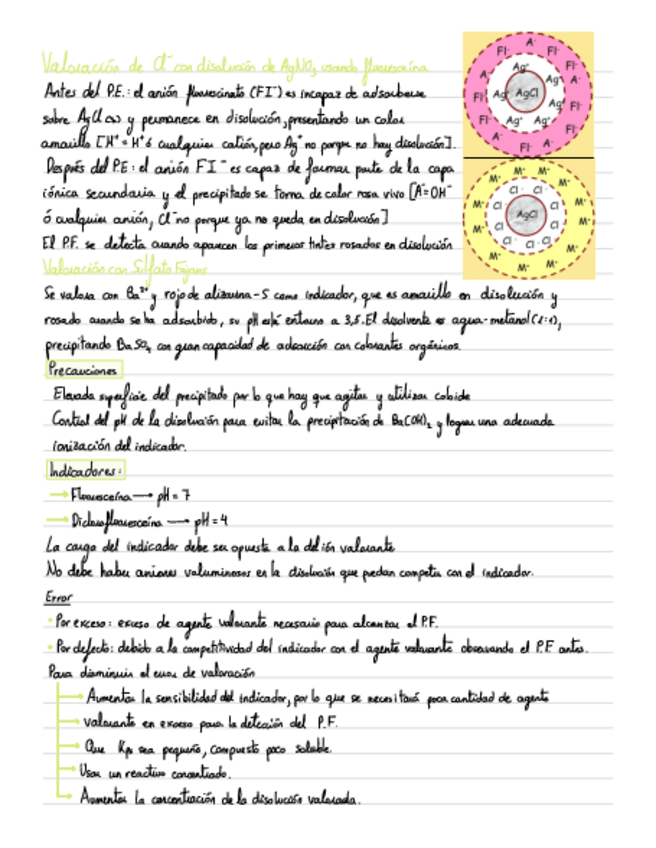 Valoración de Cl⁻ con disolución de AgNO₃ usando fluoresceína
Antes del P.E.: el anión fluoresceinato (FI⁻) es incapaz de adsorberse
sobre AgCl(s) y permanece en disolución, presentando un color
amarillo [M⁺ = H⁺ ó cualquier catión, pero Ag⁺ no porque no hay disolución].
Después del P.E: el anión FI⁻ es capaz de formar parte de la capa
iónica secundaria y el precipitado se torna de color rosa vivo [A⁻=OH⁻
ó cualquier anión, Cl⁻ no porque ya no queda en disolución]
El P.F. se detecta cuando aparecen los primeros tintes rosados en disolución
Valoración con Sulfato Fajans
Se valora con Ba²⁺ y rojo de alizarina-S como indicador, que es amarillo en disolución y
rosado cuando se ha adsorbido, su pH está entorno a 3,5. El disolvente es agua-metanol (1:1),
precipitando BaSO₄ con gran capacidad de adsorción con colorantes orgánicos.
Precauciones
Elevada superficie del precipitado por lo que hay que agitar y utilizar coloide
Control del pH de la disolución para evitar la precipitación de Ba(OH)₂ y lograr una adecuada
ionización del indicador.
Indicadores:
→ Fluoresceína → pH = 7
→ Diclorofluoresceína → pH = 4
La carga del indicador debe ser opuesta a la del ión valorante
No debe haber aniones voluminosos en la disolución que puedan competir con el indicador.
Error
• Por exceso: exceso de agente valorante necesario para alcanzar el P.F.
• Por defecto: debido a la competitividad del indicador con el agente valorante observando el P.F antes.
Para disminuir el error de valoración
→ Aumentar la sensibilidad del indicador, por lo que se necesitará poca cantidad de agente
→ valorante en exceso para la detección del P.F.
→ Que Kps sea pequeño, compuesto poco soluble.
→ Usar un reactivo concentrado.
→ Aumentar la concentración de la disolución valorada.
FI⁻ A⁻ FI⁻
A⁻ Ag⁺ Ag⁺ A⁻
FI⁻ Ag⁺ AgCl Ag⁺ FI⁻
FI⁻ Ag⁺ Ag⁺ FI⁻
A⁻ FI⁻ A⁻
M⁺ M⁺ M⁺ M⁺
M⁺ Cl⁻ Cl⁻ M⁺
Cl⁻ AgCl Cl⁻
M⁺ Cl⁻ Cl⁻ Cl⁻ M⁺
M⁺ M⁺ M⁺